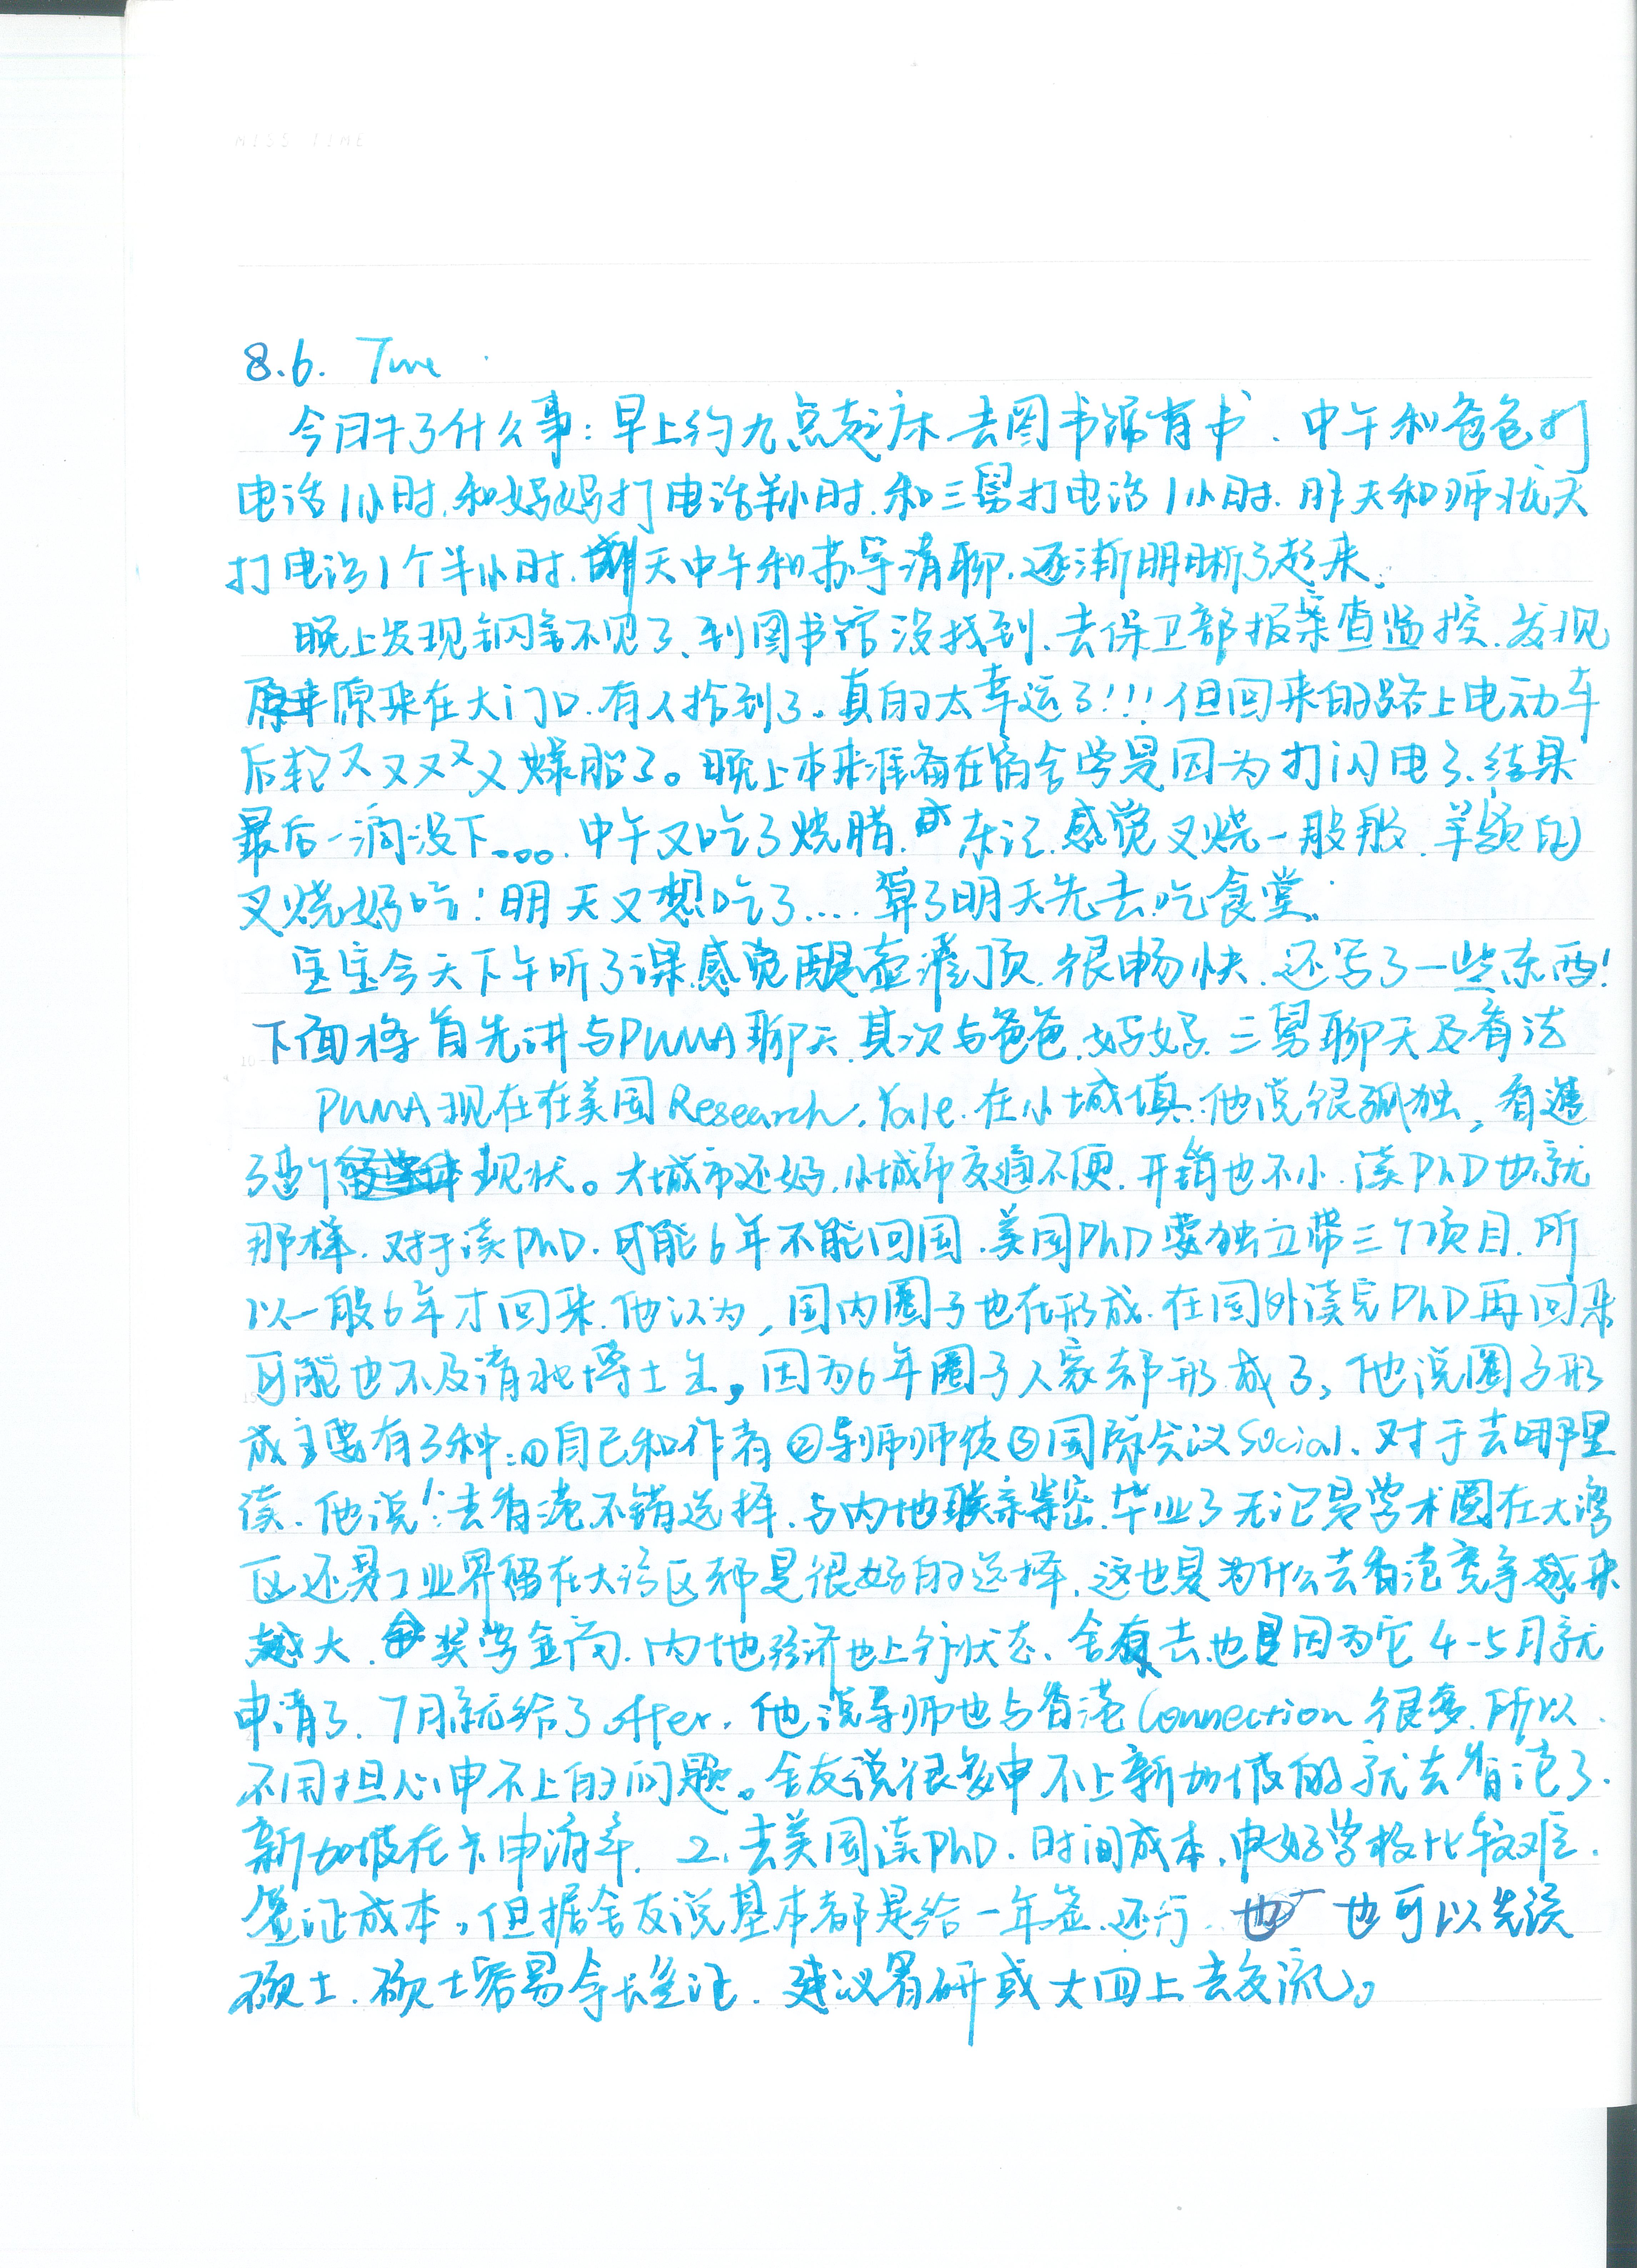 MISS TIME
8.6. Tue
今日干了什么事：早上约九点起床去图书馆看书．中午和爸爸打
电话1小时．和妈妈打电话半小时．和三舅打电话1小时．昨天和师兄天
打电话1个半小时．天中午和苏学清聊．逐渐明晰了起来．
晚上发现钢笔不见了、到图书馆没找到、去保卫部报案查监控．发现
原来在大门口．有人捡到了。真的太幸运了!!!但回来的路上电动车
后轮又又又又又爆胎了。晚上本来准备在宿舍学是因为打闪电了、结果
最后一滴没下。。。．中午又吃了烧腊．东记．感觉叉烧一般般．羊颈的
叉烧好吃！明天又想吃了....算了明天先去吃食堂．
宝宝今天下午听了课感觉醍壶灌顶．很畅快．还写了一些东西！
下面将首先讲与PUMA聊天．其次与爸爸．妈妈．三舅聊天及看法
PUMA现在在美国Research，Yale．在小城填．他说很孤独，看透
了这个现状。大城市还好．小城市交通不便．开销也不小．读PhD也就
那样．对于读PhD．可能6年不能回国．美国PhD要独立带三个项目．所
以一般6年才回来．他认为，国内圈子也在形成．在国外读完PhD再回来
可能也不及清北博士生，因为6年圈子人家都形成了，他说圈子形
成主要有3种：①自己和作者②导师师传③国际会议Social、对于去哪里
读．他说1：去香港不错选择．与内地联亲密．毕业了无论是学术圈在大湾
区还是工业界留在大湾区都是很好的选择．这也是为什么去香港竞争越来
越大．奖学金高．内地经济也上行状态、舍友去也是因为它4-5月就
申请了．7月就给了offer，他说导师也与香港Connection很多．所以
不用担心申不上的问题。舍友说很多申不上新加坡的就去香港了．
新加坡在卡申请率．2．去美国读PhD．时间成本，申好学校比较难．
签证成本，但据舍友说基本都是给一年签．还行．也可以先读
硕士．硕士容易拿长签证．建议暑研或大四上去交流。